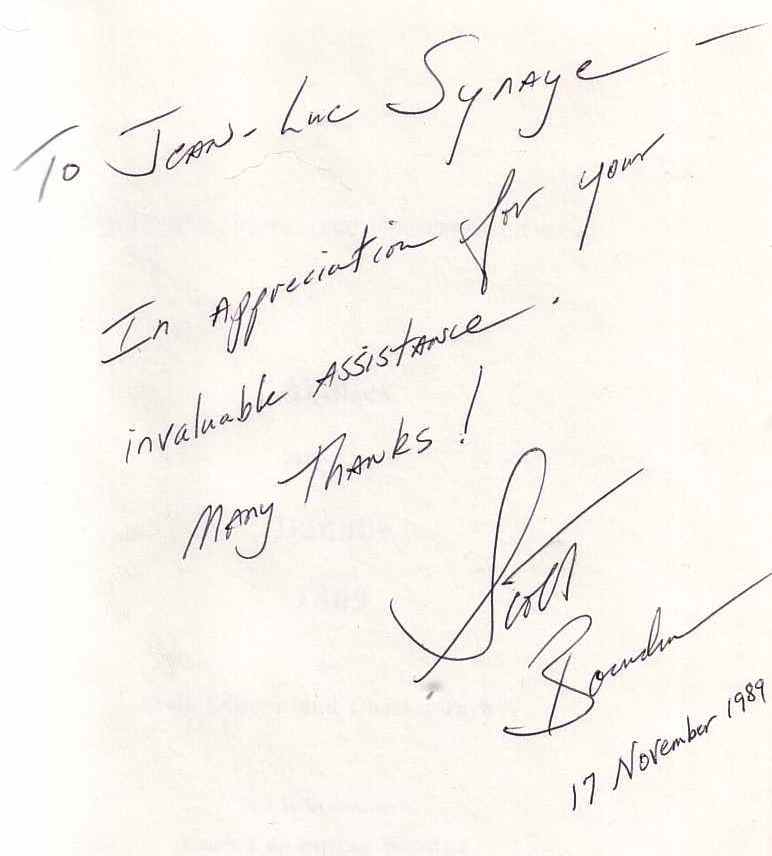 To Jean-Luc Synaye —
In Appreciation for your
invaluable Assistance.
Many Thanks!
Scott
17 November 1989